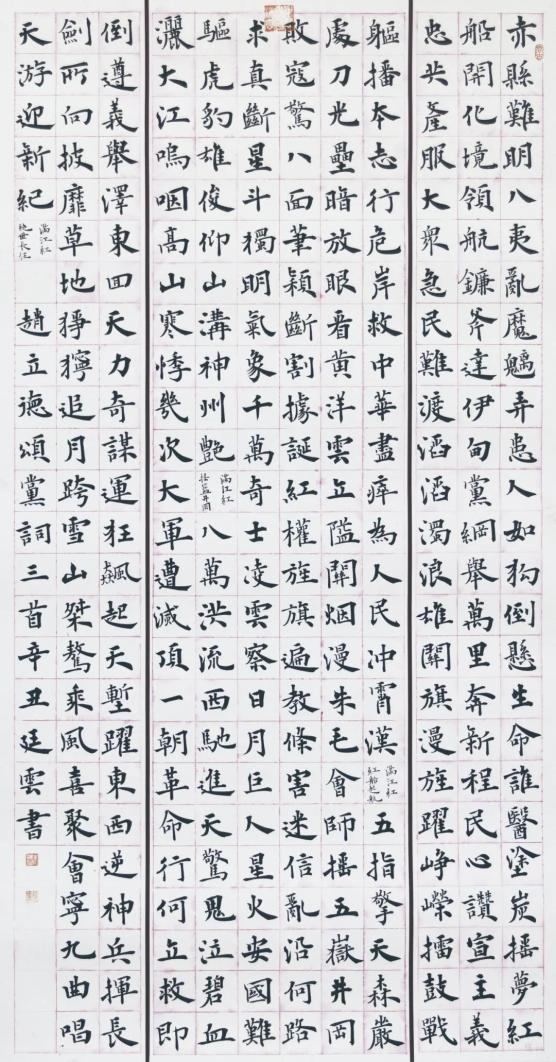 赤縣難明八夷亂魔魑弄患人如狗倒懸生命誰醫塗炭搖夢紅
船開化境領航鐮斧達伊甸黨綱舉萬里奔新程民心讚宣主義
忠共產服大眾急民難渡滔滔濁浪雄關旗漫旌躍崢嶸擂鼓戰
軀播本志行危岸救中華盡瘁為人民沖霄漢
滿江紅
紅船起航
五指擎天森嚴
處刀光壘暗放眼看黃洋雲立隘關烟漫朱毛會師搖五嶽井岡
敗寇驚八面筆穎斷割據誕紅權旌旗遍教條害迷信亂沿何路
求真斷星斗獨明氣象千萬奇士凌雲察日月巨人星火安國難
驅虎豹雄俊仰山溝神州艷
滿江紅
搖籃井岡
八萬洪流西馳進天驚鬼泣碧血
灑大江嗚咽高山寒悸幾次大軍遭滅頂一朝革命行何立救即
倒遵義舉澤東回天力奇謀運狂飆起天塹躍東西逆神兵揮長
劍所向披靡草地猙獰追月跨雪山桀驁乘風喜聚會寧九曲唱
天游迎新紀
滿江紅
世長征
趙立德頌黨詞三首辛丑廷雲書